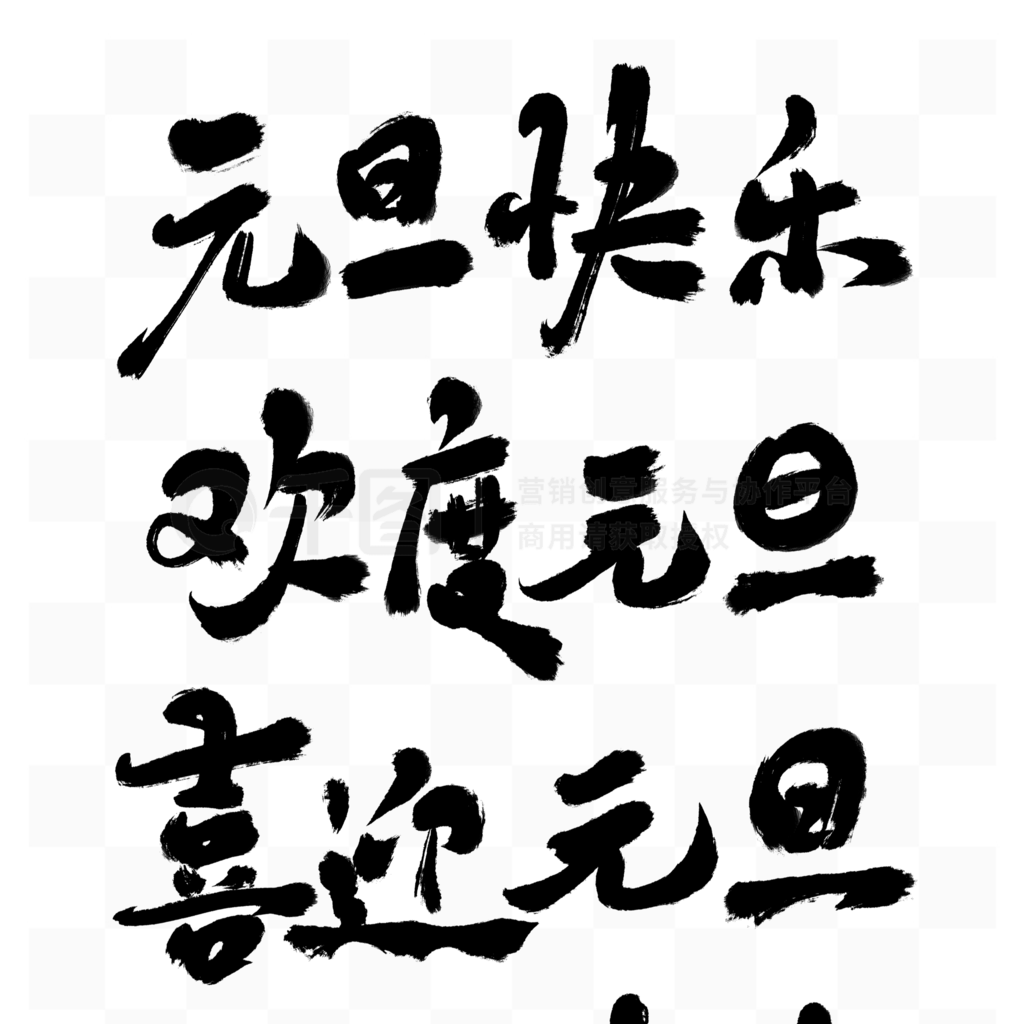 元旦快乐
欢度元旦
营销创意服务与协作平台
商用请获取授权
喜迎元旦